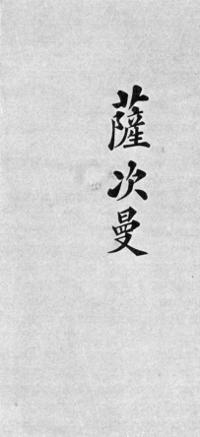 薩次曼